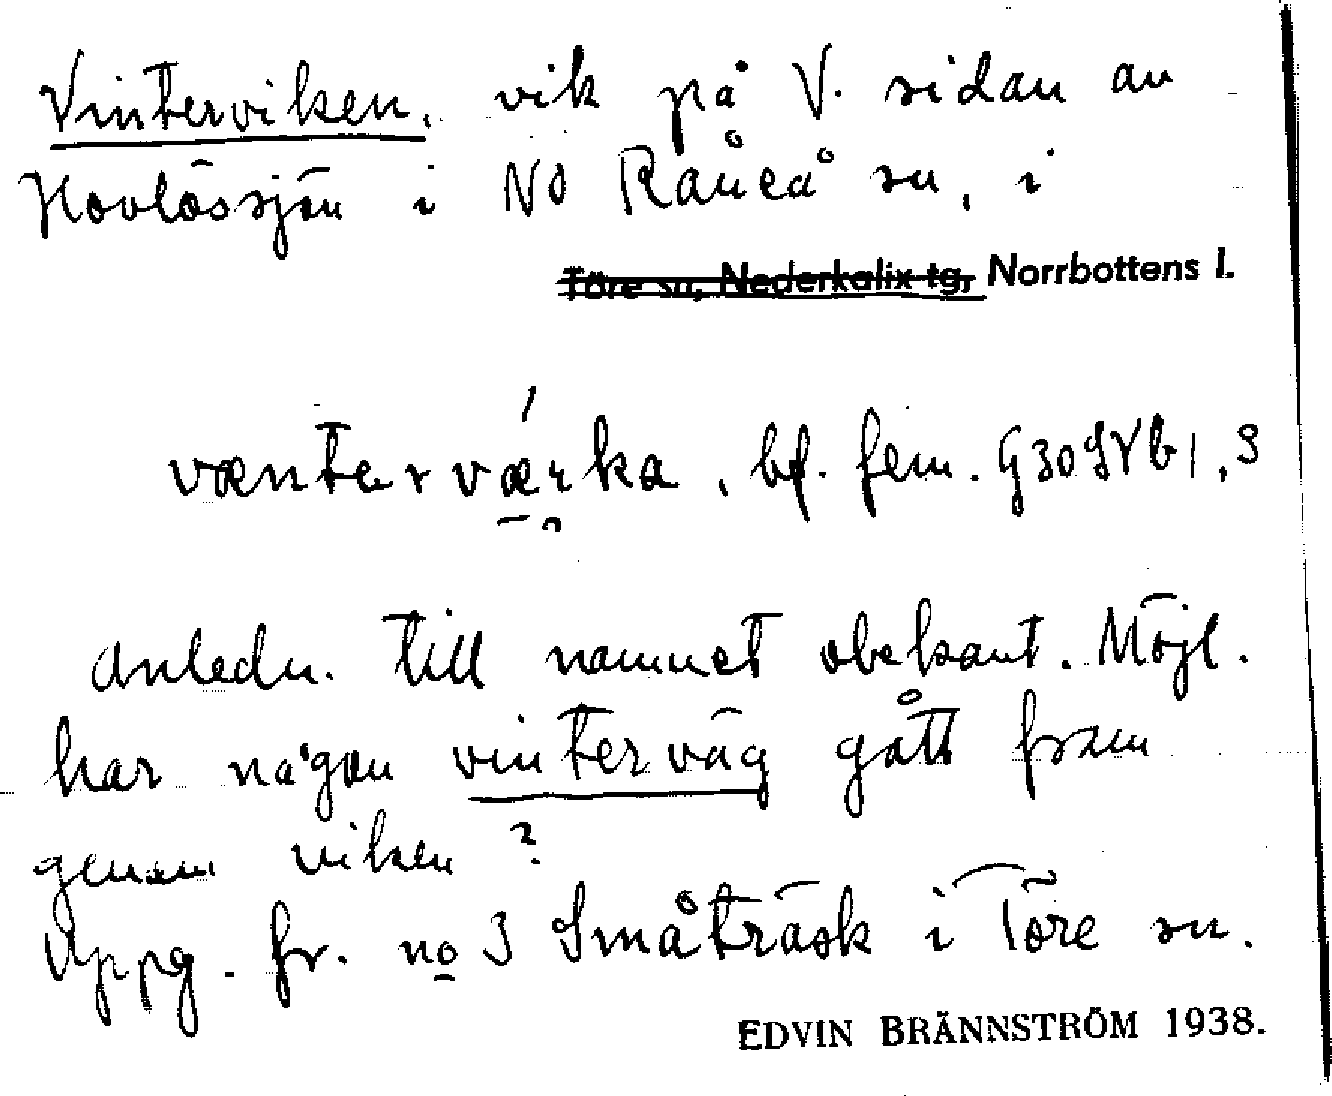 Vinterviken, vik på V. sidan av
Hovlössjön i NO Råneå sn, i
Töre sn, Nederkalix tg, Norrbottens l.
vænter værka, bf. fem.
Anledn. till namnet obekant. Möjl.
har någon vinterväg gått fram
genom viken?
Uppg. fr. no 3 Småträsk i Töre sn.
EDVIN BRÄNNSTRÖM 1938.